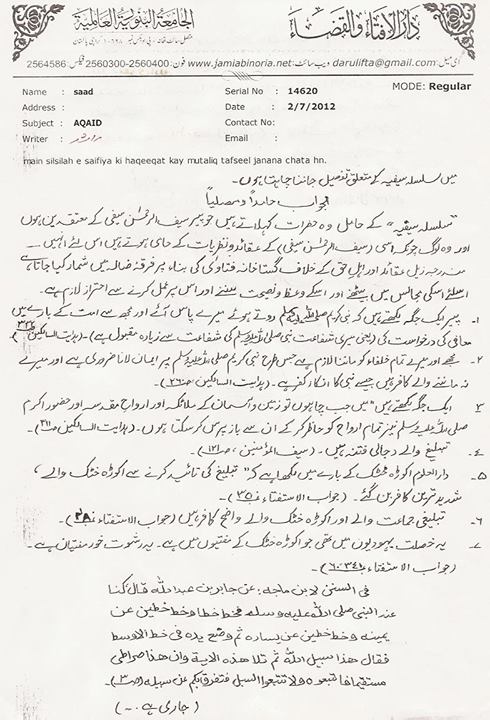 دار الافتاء والقضاء
الجامعة البنورية العالمية
ای میل: darulifta@gmail.com ویب سائٹ: www.jamiabinoria.net فون: 2560300-2560400 فیکس: 2564586
MODE: Regular
Name : saad
Serial No : 14620
Address :
Date : 2/7/2012
Subject : AQAID
Contact No:
Writer :
Email :
main silsilah e saifiya ki haqeeqat kay mutaliq tafseel janana chata hn.
میں سلسلہ سیفیہ کے متعلق تفصیل جاننا چاہتا ہوں۔
الجواب حامداً ومصلیاً
"سلسلہ سیفیہ" کے حامل وہ حضرات کہلاتے ہیں جو پیر سیف الرحمٰن سیفی کے معتقدین ہوں
اور وہ لوگ چونکہ اسی (سیف الرحمٰن سیفی) کے عقائد و نظریات کے حامی ہوتے ہیں اس لئے انہیں
مندرجہ ذیل عقائد اور اہل حق کے خلاف گستاخانہ فتاویٰ کی بناء پر فرقہ ضالہ میں شمار کیا جاتا ہے
اسلئے اسکی مجالس میں بیٹھنے اور اسکے وعظ و نصیحت سننے اور اس پر عمل کرنے سے احتراز لازم ہے۔
۱۔ پیر ایک جگہ لکھتے ہیں کہ نبی کریم صلی اللہ علیہ وسلم روتے ہوئے میرے پاس آئے اور مجھ سے امت کے بارے میں
معافی کی درخواست کی (یعنی میری شفاعت نبی صلی اللہ علیہ وسلم کی شفاعت سے زیادہ مقبول ہے)۔ (ہدایت السالکین
۲۔ مجھے اور میرے تمام خلفاء کو ماننا لازم ہے جس طرح نبی کریم صلی اللہ علیہ وسلم پر ایمان لانا ضروری ہے اور میرے
نہ ماننے والے کافر ہیں جیسے نبی کا انکار کفر ہے۔ (ہدایت السالکین
۳۔ ایک جگہ لکھتے ہیں "میں جب چاہوں تو زمین و آسمان کے ملائکہ اور ارواح مقدسہ اور حضور اکرم
صلی اللہ علیہ وسلم نیز تمام ارواح کو حاضر کر کے ان سے باز پرس کر سکتا ہوں۔ (ہدایت السالکین
۴۔ تبلیغ والے دجالی فتنہ ہیں۔ (سیف المؤمنین
۵۔ دارالعلوم اکوڑہ خٹک کے بارے میں لکھا ہے کہ "تبلیغ کی تائید کرنے سے اکوڑہ خٹک والے
شدید ترین کافر بن گئے۔ (جواب الاستفتاء
۶۔ تبلیغی جماعت والے اور اکوڑہ خٹک والے واضح کافر ہیں (جواب الاستفتاء
۷۔ یہ خصلت یہودیوں میں تھی جو اکوڑہ خٹک کے مفتیوں میں ہے۔ یہ رشوت خور مفتیان ہے۔
(جواب الاستفتاء
فی السنن لابن ماجہ: عن جابر بن عبداللہ قال کنا
عند النبی صلی اللہ علیہ وسلم فخط خطا وخط خطین عن
یمینہ وخط خطین عن یسارہ ثم وضع یدہ فی خط الاوسط
فقال ھذا سبیل اللہ ثم تلا ھذہ الایۃ وان ھذا صراطی
مستقیما فاتبعوہ ولا تتبعوا السبل فتفرق بکم عن سبیلہ
(جاری ہے۔۔۔)